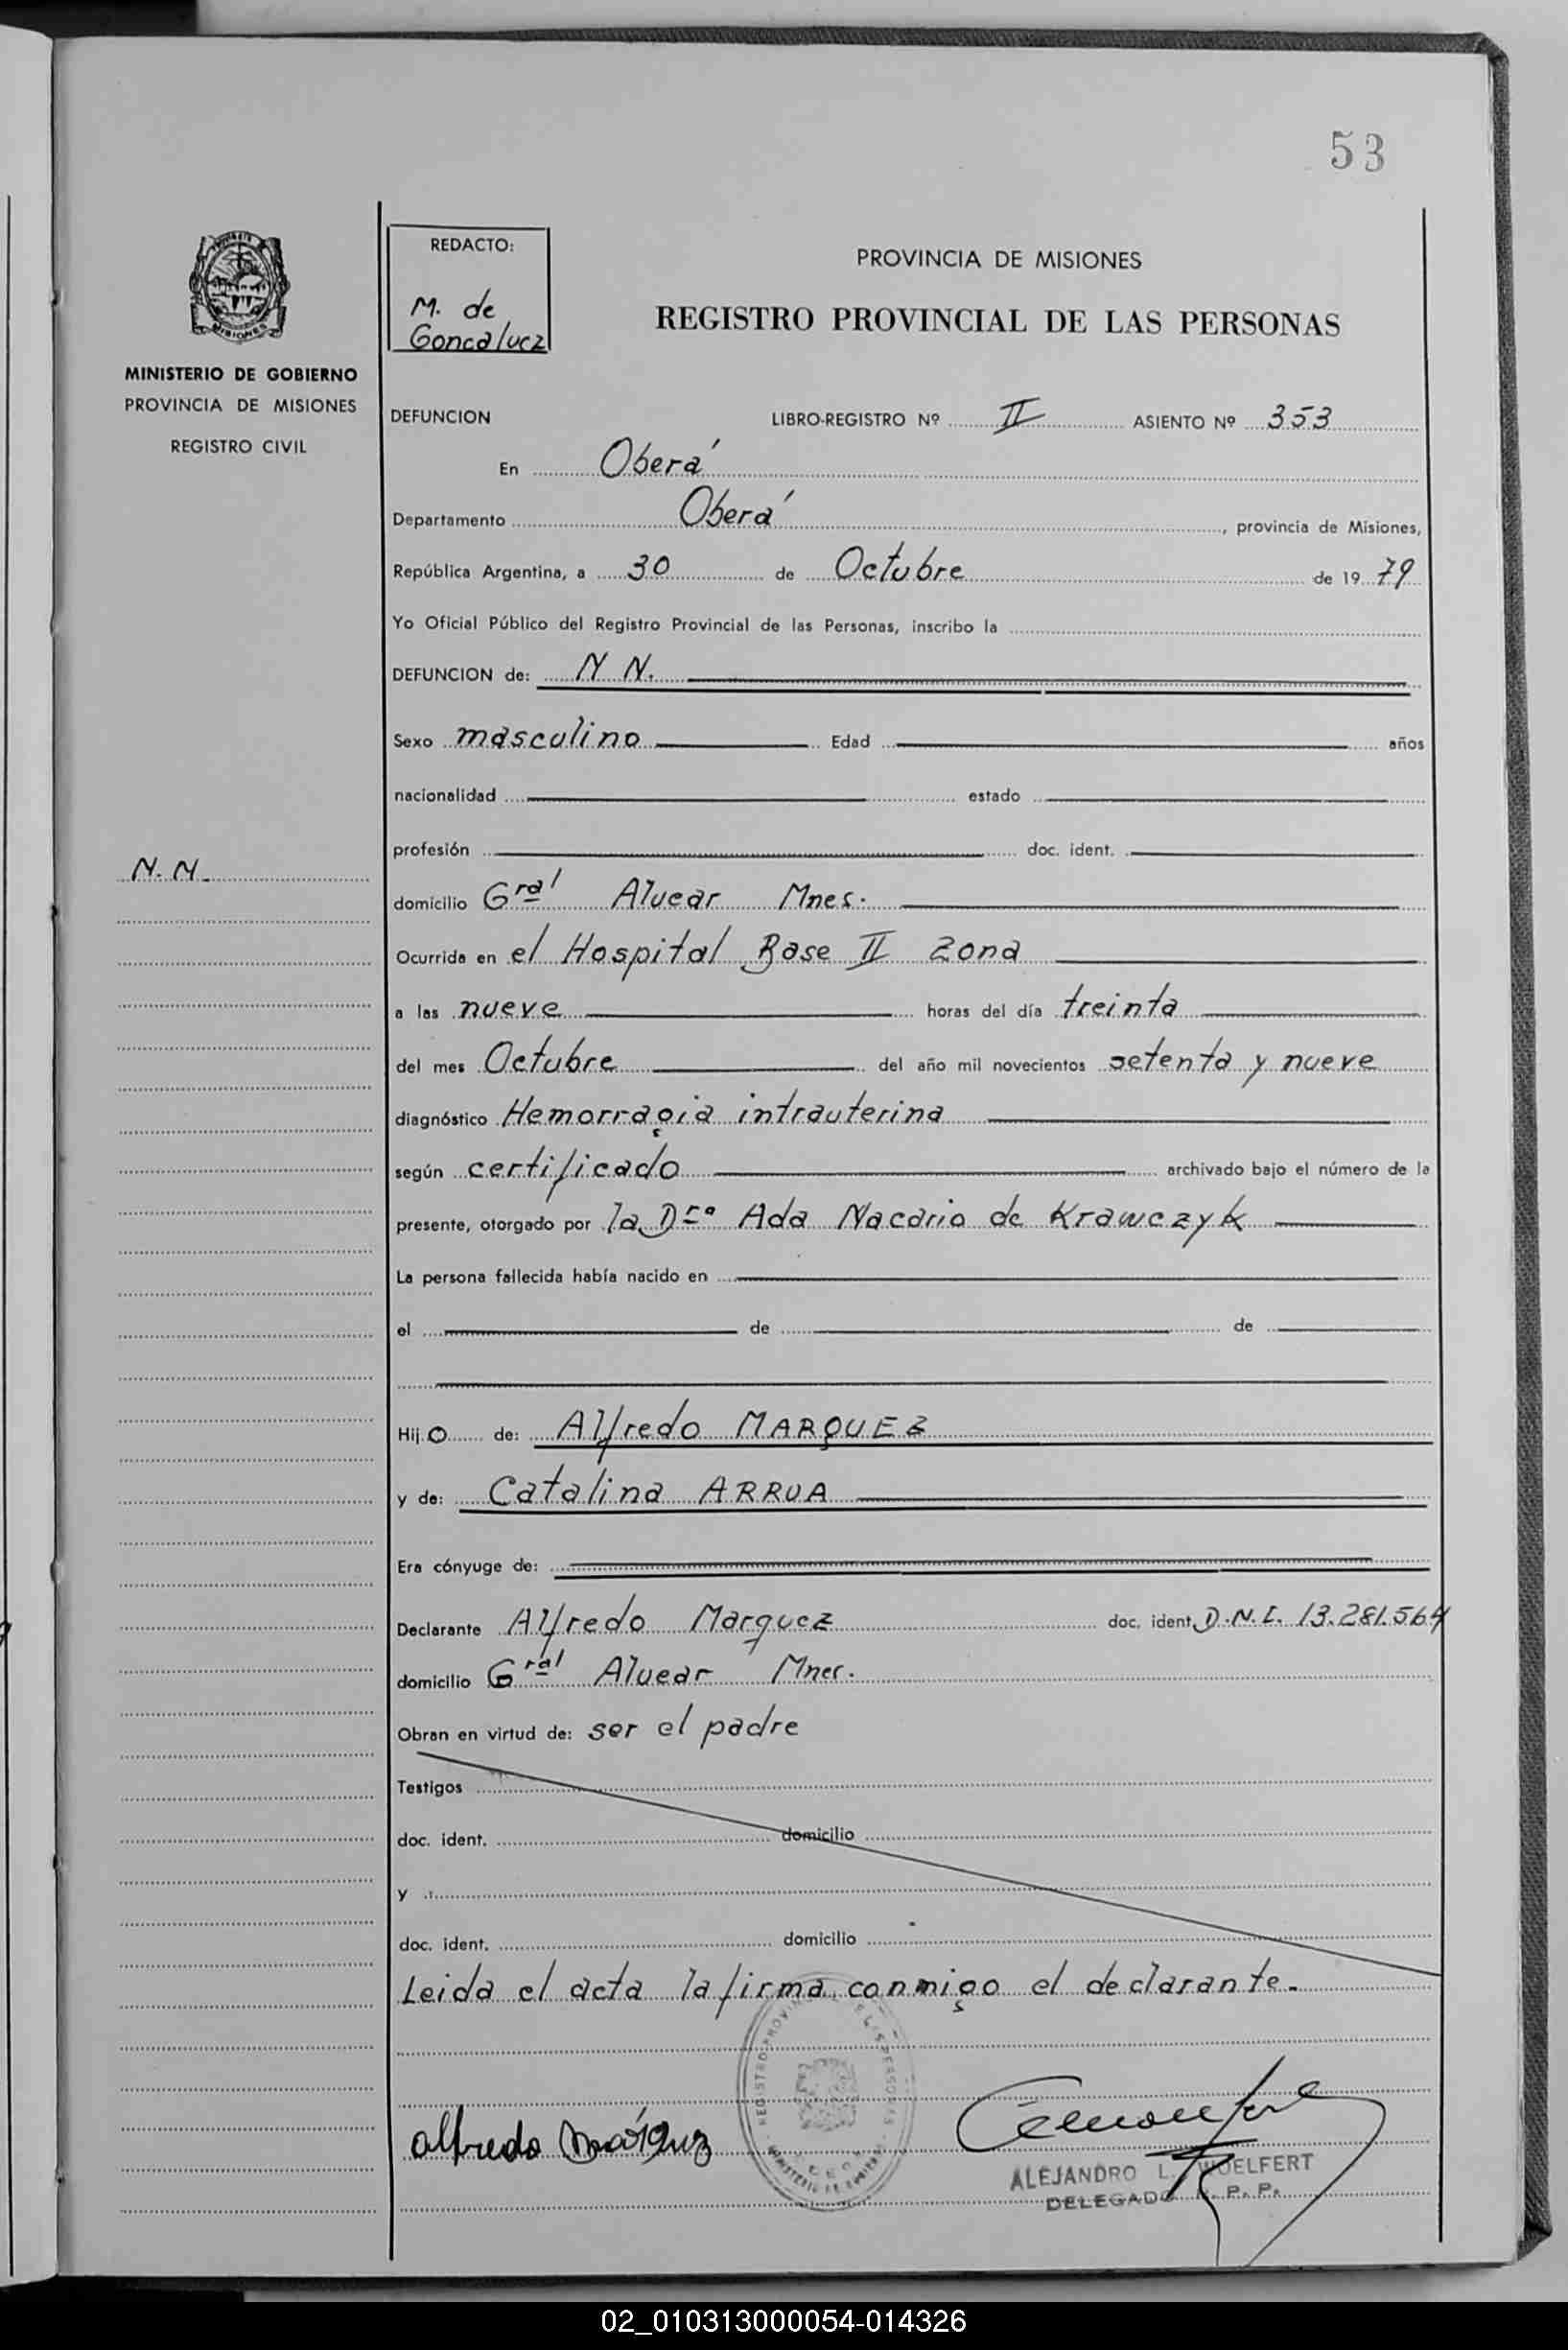 53
REDACTO:
M. de
Goncalvez
PROVINCIA DE MISIONES
REGISTRO PROVINCIAL DE LAS PERSONAS
MISIONES
MINISTERIO DE GOBIERNO
PROVINCIA DE MISIONES
REGISTRO CIVIL
DEFUNCION LIBRO-REGISTRO Nº II ASIENTO Nº 353
En Oberá
Departamento Oberá, provincia de Misiones,
República Argentina, a 30 de Octubre de 1979
Yo Oficial Público del Registro Provincial de las Personas, inscribo la
DEFUNCION de: N N.
Sexo masculino Edad años
nacionalidad estado
profesión doc. ident.
N. N.
domicilio Gral Alvear Mnes.
Ocurrida en el Hospital Base II Zona
a las nueve horas del día treinta
del mes Octubre del año mil novecientos setenta y nueve
diagnóstico Hemorragia intrauterina
según certificado archivado bajo el número de la
presente, otorgado por la Dra Ada Nacario de Krawczyk
La persona fallecida había nacido en
el de de
Hijo de: Alfredo MARQUEZ
y de: Catalina ARRUA
Era cónyuge de:
Declarante Alfredo Marquez doc. ident. D.N.I. 13.281.564
domicilio Gral Alvear Mnes.
Obran en virtud de: ser el padre
Testigos
doc. ident. domicilio
y
doc. ident. domicilio
Leida el acta la firma conmigo el declarante.
alfredo Márquz
ALEJANDRO L. WUELFERT
DELEGADO R. P. P.
02_010313000054-014326